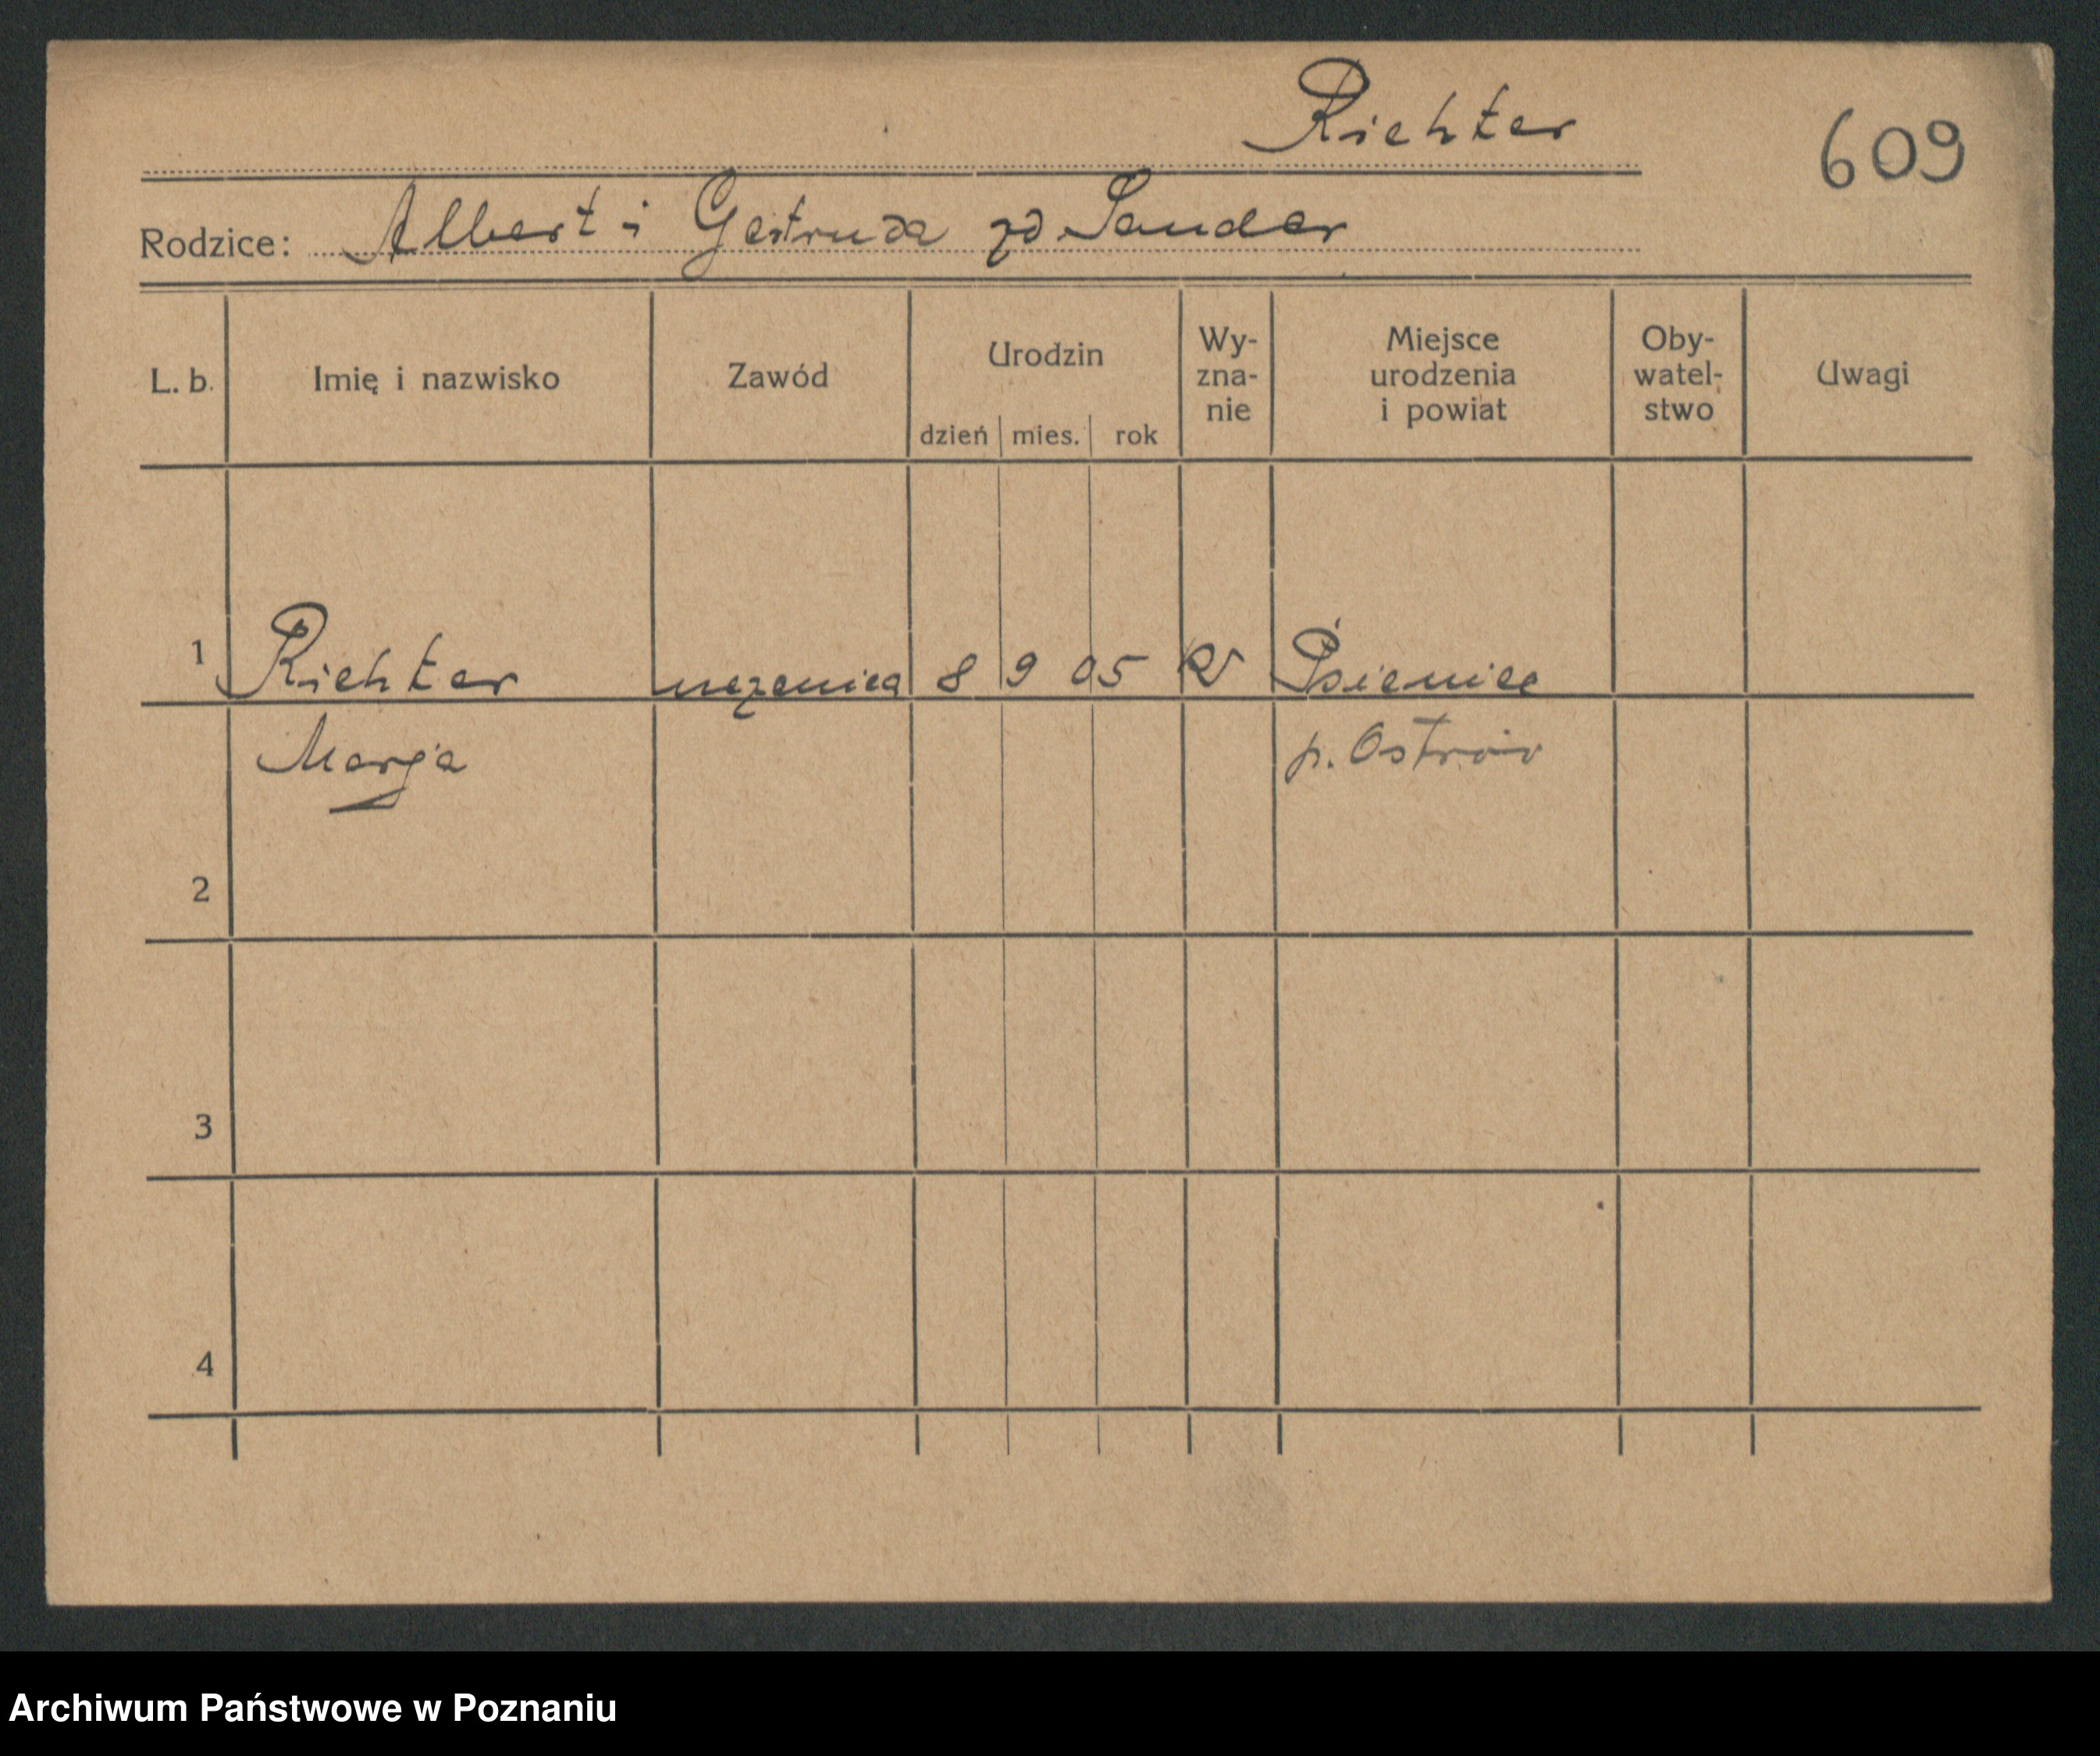 Richter
609
Rodzice: Albert i Gertruda zd Sander
L. b. Imię i nazwisko Zawód Urodzin dzień mies. rok Wy-zna-nie Miejsce urodzenia i powiat Oby-watel-stwo Uwagi
1 Richter uczenica 8 9 05 Psienie
Marja p. Ostrów
2
3
4
Archiwum Państwowe w Poznaniu